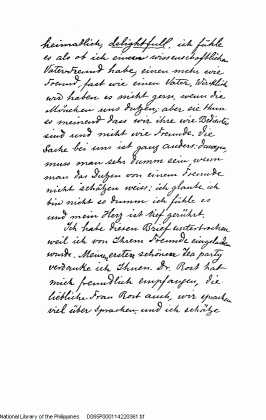 heimatlich, delightfull, ich fühle
es als ob ich einen wissenschaftlichen
Vater-Freund habe, einen mehr wie
Freund, fast wie einen Vater. Wirklich
wir haben es nicht gern, wenn die
Mönchen uns dutzen, aber sie thun
es meinend dass wir ihre wie Bediente
sind und nicht wie Freunde. die
Sache bei uns ist ganz anders;
muss man sehr dumm sein wenn
man das Dutzen von einem Freunde
nicht schätzen weiss; ich glaube ich
bin nicht so dumm ich fühle es
und mein Herz ist tief gerührt.
Ich habe diesen Brief unterbrochen
weil ich von Ihrem Freunde eingeladen
wurde. Meine ersten schönen Tea party
verdanke ich Ihnen. Dr. Rost hat
mich freundlich empfangen, die
liebliche Frau Rost auch, wir sprachen
viel über Sprachen, und ich schätze
National Library of the Philippines DG95F000114220361.tif